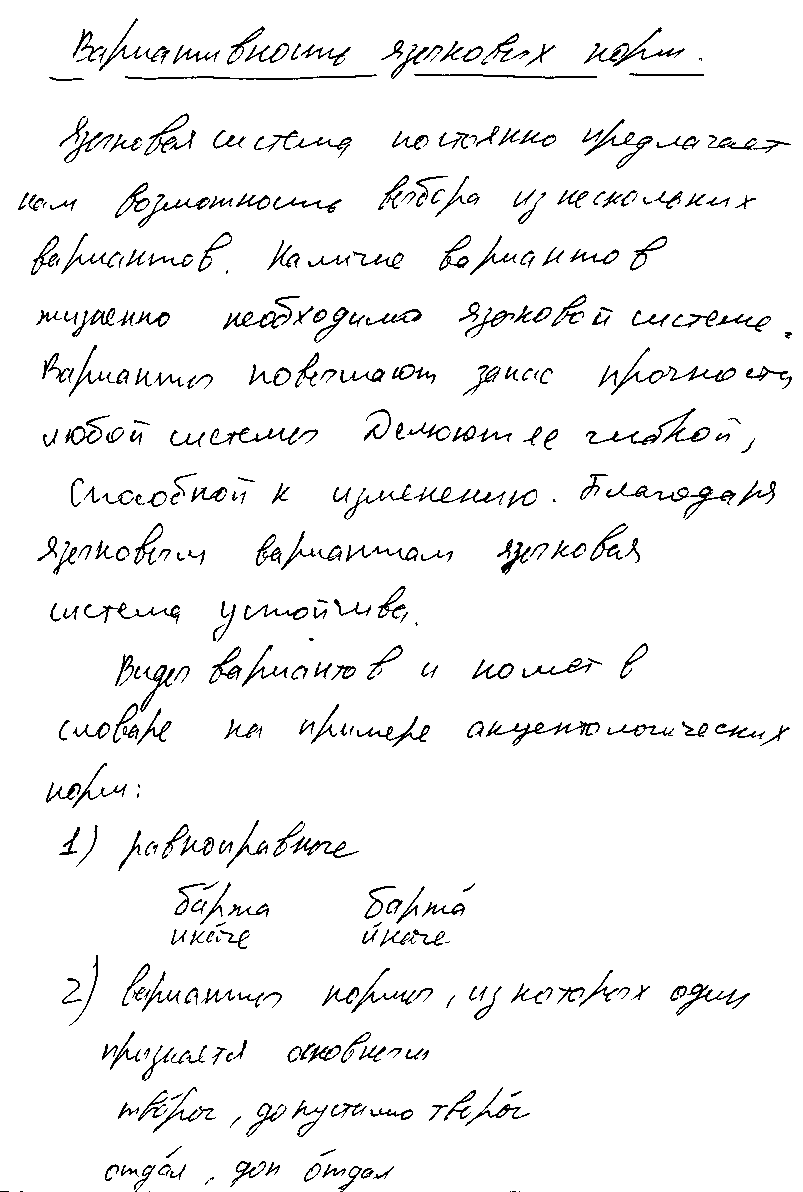 Вариативность языковых норм.
Языковая система постоянно предлагает
нам возможность выбора из нескольких
вариантов. Наличие вариантов
жизненно необходимо языковой системе.
Варианты повышают запас прочности
любой системы Делают ее гибкой,
способной к изменению. Благодаря
языковым вариантам языковая
система устойчива.
Виды вариантов и помет в
словаре на примере акцентологических
норм:
1) равноправные
ба́ржа баржа́
ина́че и́наче
2) варианты нормы, из которых один
признается основным
тво́рог, допустимо творо́г
отда́л, доп о́тдал